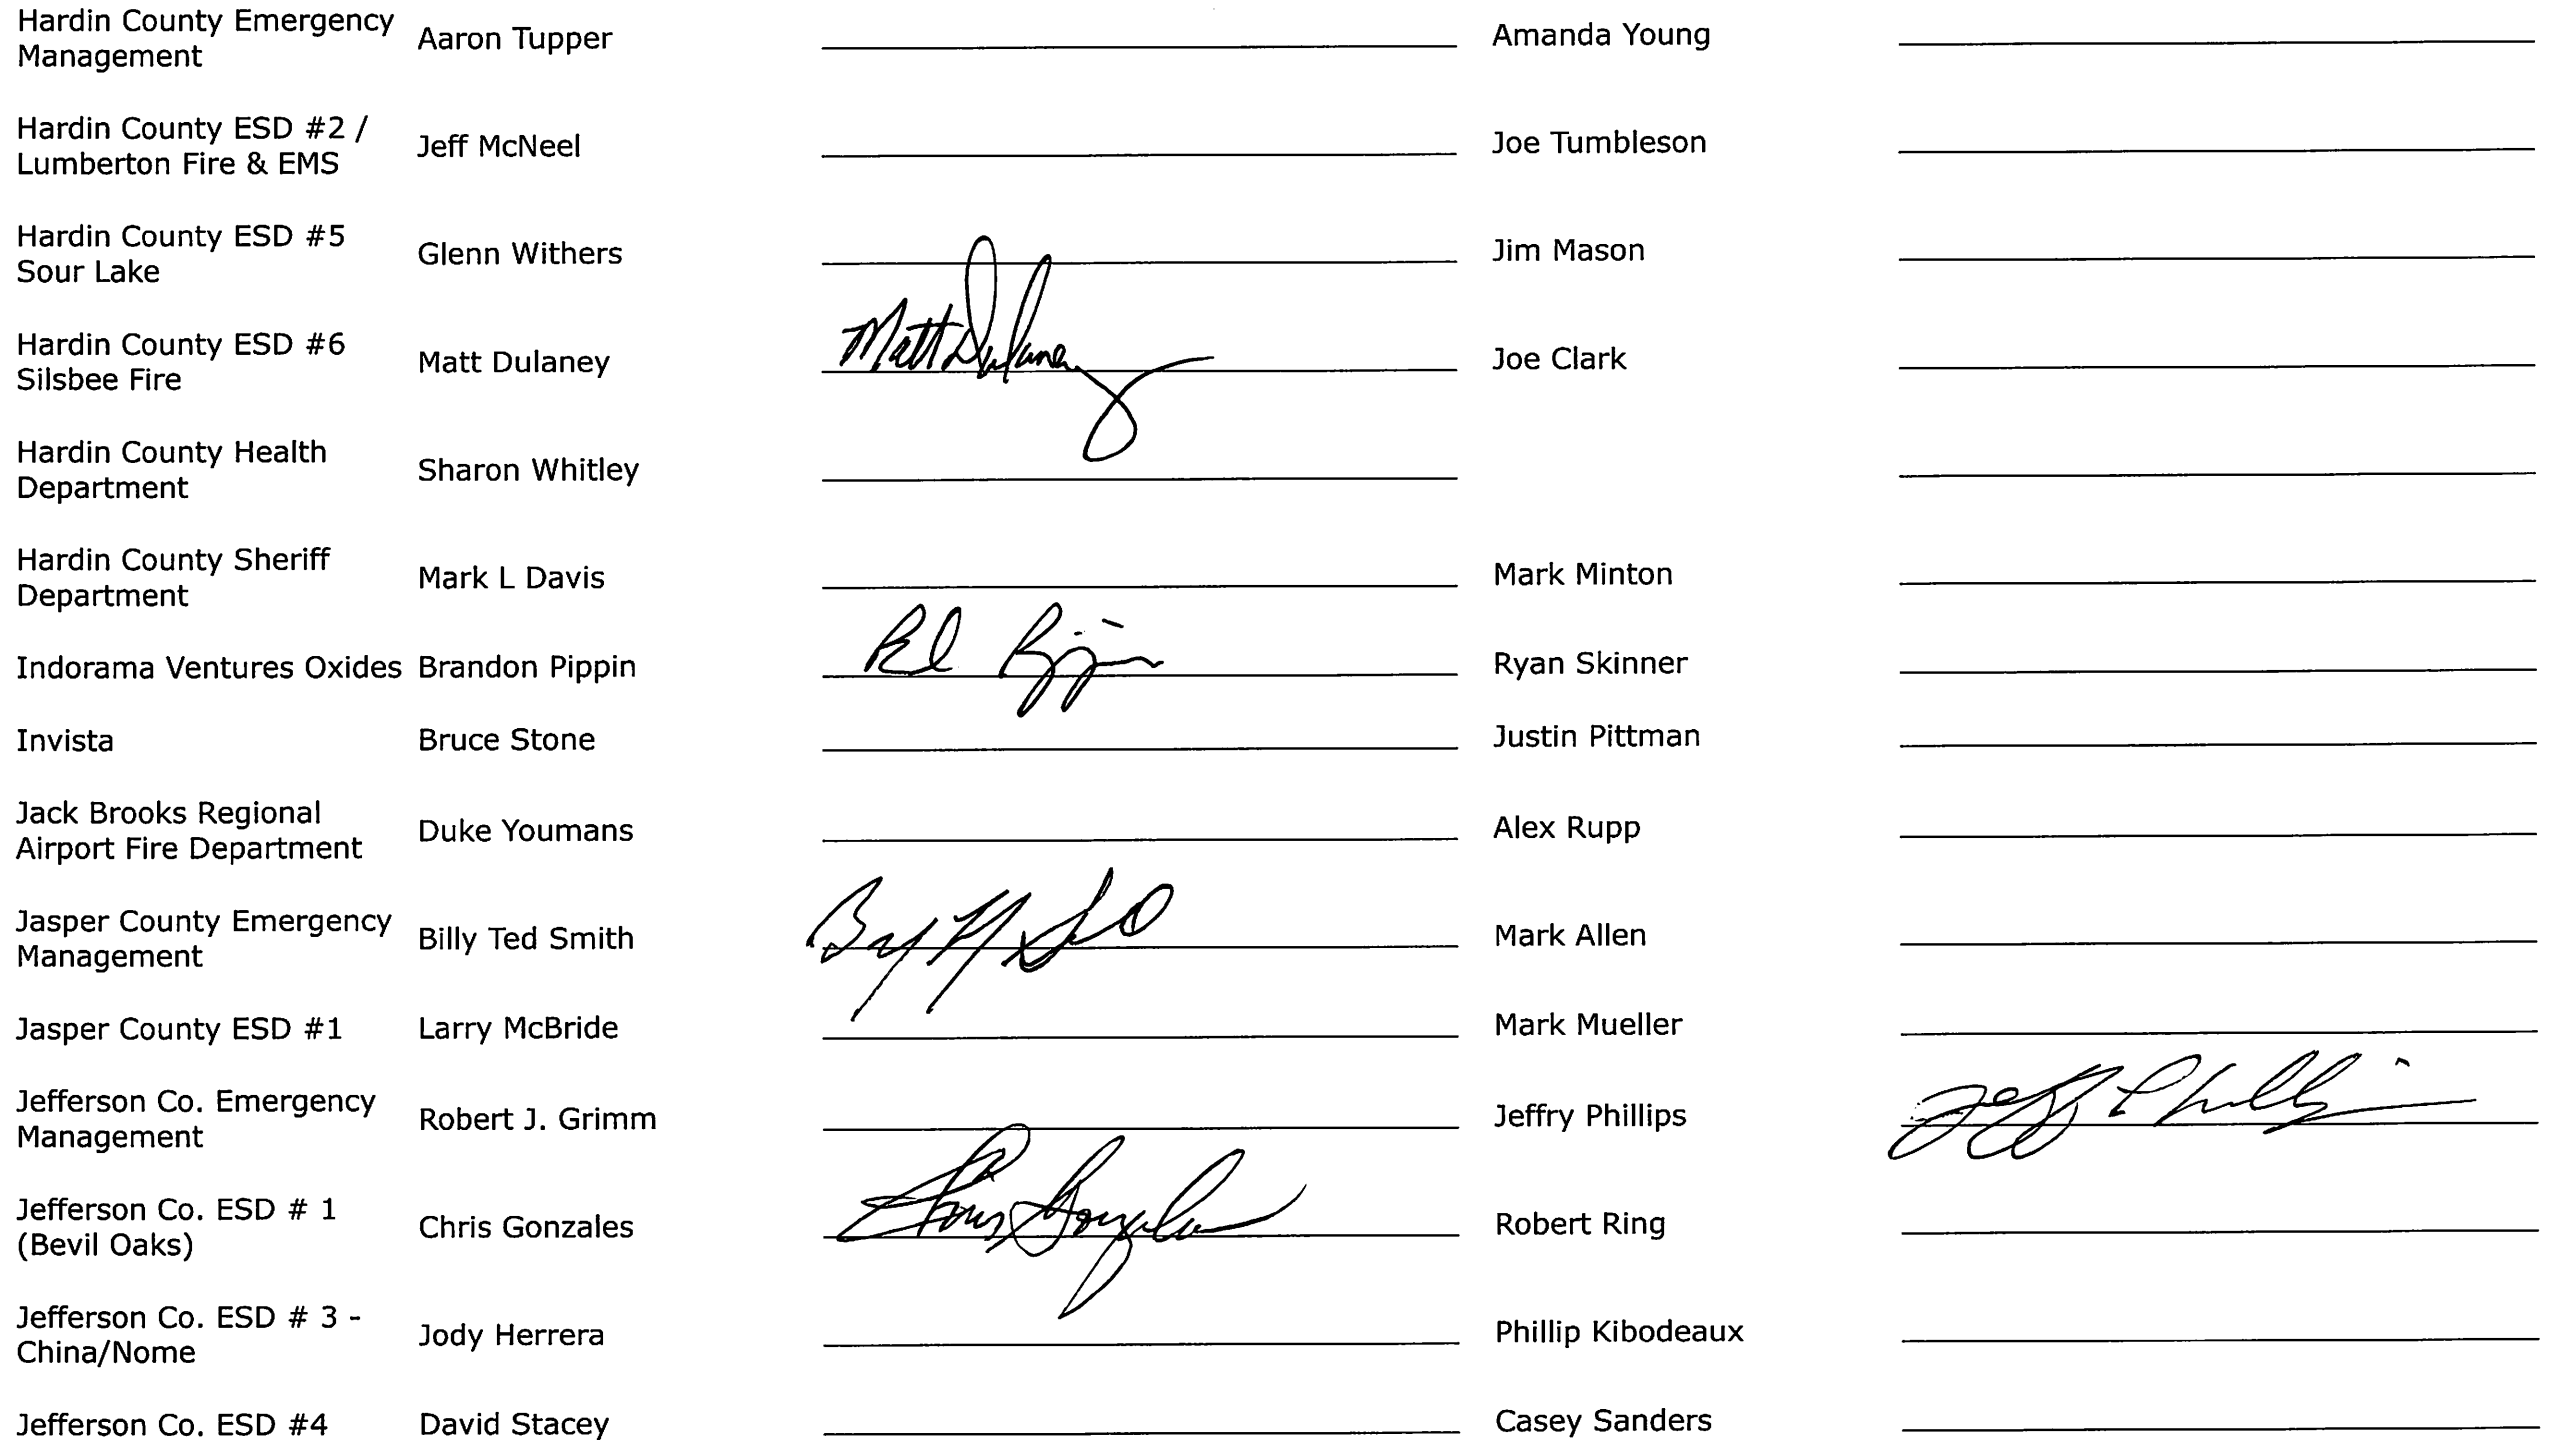 Hardin County Emergency
Management
Aaron Tupper
Amanda Young
Hardin County ESD #2 /
Lumberton Fire & EMS
Jeff McNeel
Joe Tumbleson
Hardin County ESD #5
Sour Lake
Glenn Withers
Jim Mason
Hardin County ESD #6
Silsbee Fire
Matt Dulaney
Matt Dulaney
Joe Clark
Hardin County Health
Department
Sharon Whitley
Hardin County Sheriff
Department
Mark L Davis
Mark Minton
Indorama Ventures Oxides
Brandon Pippin
Ryan Skinner
Invista
Bruce Stone
Justin Pittman
Jack Brooks Regional
Airport Fire Department
Duke Youmans
Alex Rupp
Jasper County Emergency
Management
Billy Ted Smith
Mark Allen
Jasper County ESD #1
Larry McBride
Mark Mueller
Jefferson Co. Emergency
Management
Robert J. Grimm
Jeffry Phillips
Jeff Phillips
Jefferson Co. ESD # 1
(Bevil Oaks)
Chris Gonzales
Chris Gonzales
Robert Ring
Jefferson Co. ESD # 3 -
China/Nome
Jody Herrera
Phillip Kibodeaux
Jefferson Co. ESD #4
David Stacey
Casey Sanders